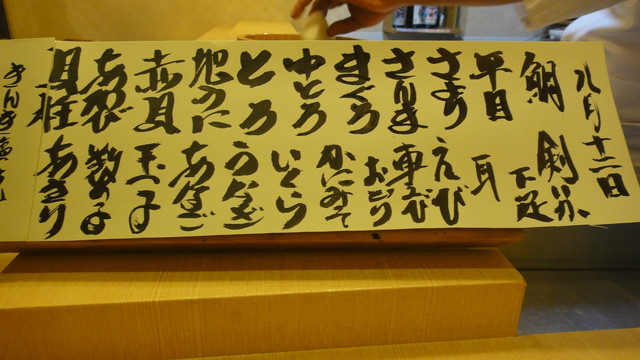 九月十二日
鯛
平目
さより
さんま
まぐろ
中とろ
とろ
地うに
赤貝
あわび
貝柱
剣先
下足
耳
えび
車えび
おどり
かにみそ
いくら
うなぎ
あなご
玉子
数の子
あさり